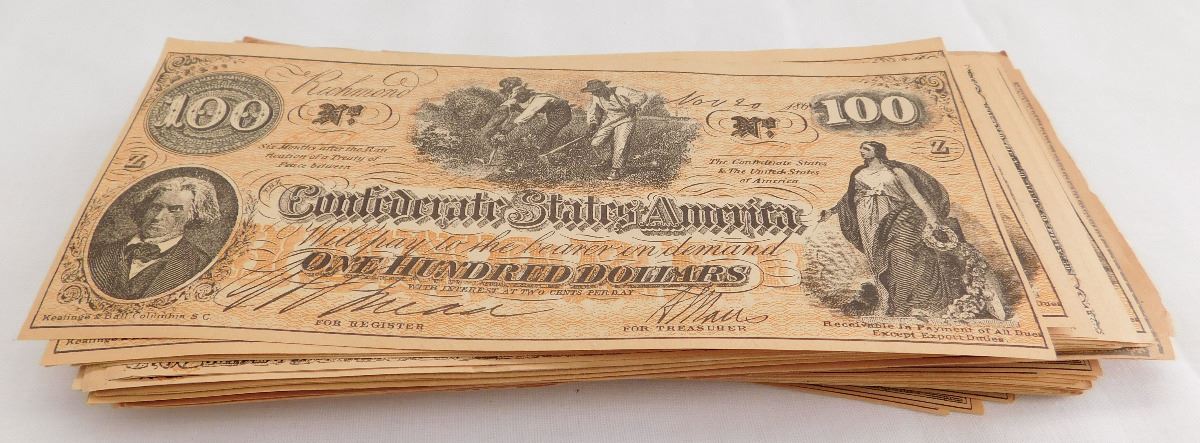 100
The
Richmond
No.
Nov 20 186
No.
100
Z
Six Months after the Rati
fication of a Treaty of
Peace between
The Confederate States
& The United States
of America
Z
Confederate States America
Will pay to the bearer on demand
One Hundred Dollars
WITH INTEREST AT TWO CENTS PER DAY
FOR REGISTER
FOR TREASURER
Keatinge & Ball Columbia S C
Receivable in Payment of All Dues
Except Export Duties
Keatinge
Dues